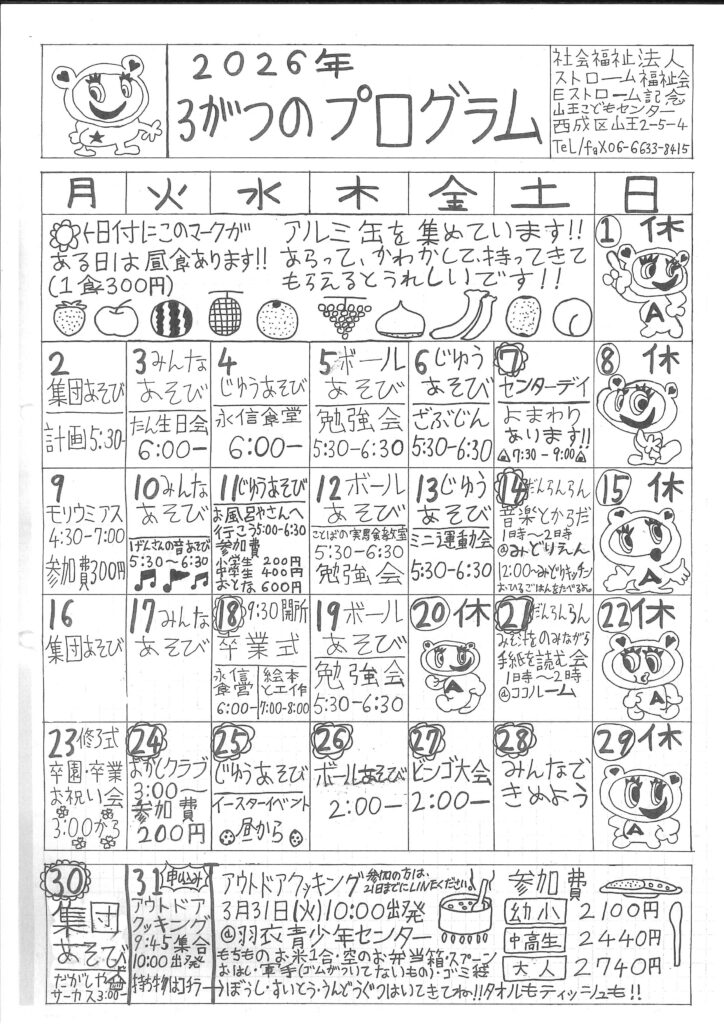 2026年
3がつのプログラム
社会福祉法人
ストローム福祉会
Eストローム記念
山王こどもセンター
西成区山王2-5-4
TeL/faX06-6633-8415
月 火 水 木 金 土 日
←日付にこのマークが
ある日は昼食あります!!
(1食300円)
アルミ缶を集めています!!
あらって、かわかして、持ってきて
もらえるとうれしいです!!
1 休
A
2
集団あそび
計画5:30-
3みんな
あそび
たん生日会
6:00-
4
じゆうあそび
永信食堂
6:00-
5ボール
あそび
勉強会
5:30-6:30
6じゆう
あそび
ざぶじん
5:30-6:30
7
センターデイ
よまわり
あります!!
7:30-9:00
8 休
9
モリウミアス
4:30-7:00
参加費300円
10みんな
あそび
げんさんの音あそび
5:30~6:30
11じゆうあそび
お風呂やさんへ
行こう5:00-6:30
参加費
小学生 200円
中学生 400円
おとな 600円
12ボール
あそび
ことばの実男食教室
5:30-6:30
勉強会
13じゆう
あそび
ミニ運動会
5:30-6:30
14だんらんらん
音楽とからだ
1時~2時
@みどりえん
12:00~みどりキッチン
おひるごはんをたべるよ。
15 休
A
16
集団あそび
17みんな
あそび
18 9:30開所
卒業式
永信
食堂
6:00-
絵本
と工作
7:00-8:00
19ボール
あそび
勉強会
5:30-6:30
20休
A
21だんらんらん
みそ汁をのみながら
手紙を読む会
1時~2時
@ココルーム
22休
A
23修了式
卒園・卒業
お祝い会
3:00から
24
おかしクラブ
3:00~
参加費
200円
25
じゆうあそび
イースターイベント
昼から
26
ボールあそび
2:00-
27
ビンゴ大会
2:00-
28
みんなで
きめよう
29休
A
30
集団
あそび
だがしや
サーカス3:00-
31 申込み
アウトドア
クッキング
9:45集合
10:00出発
持ち物はコチラ→
アウトドアクッキング 参加の方は、
21日までにLINEください。
3月31日(火)10:00出発
@羽衣青少年センター
もちもの お米1合・空のお弁当箱・スプーン
おはし・軍手(ゴムがついてないもの)・ゴミ袋
ぼうし・すいとう・うんどうぐつはいてきてね!!タオルもティッシュも!!
参加費
幼小 2100円
中高生 2440円
大人 2740円